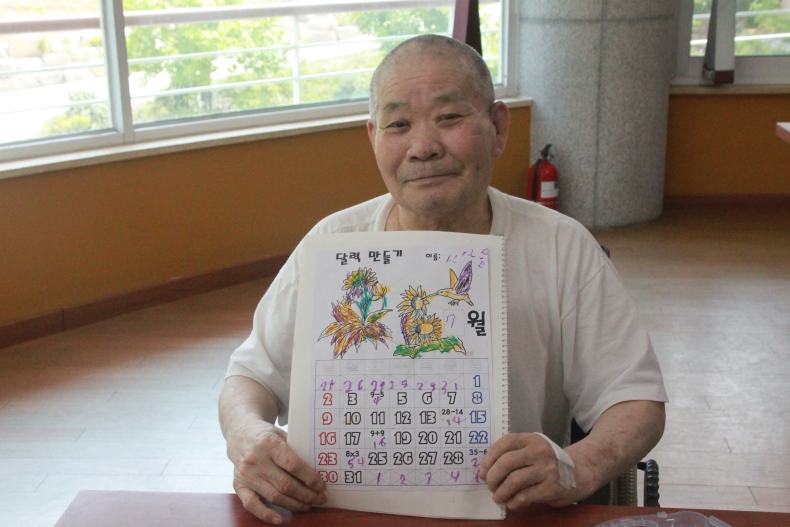 달력 만들기 이름:
7 월
26 28 1
2 3 9-5 4 5 6 7 8
9 10 11 12 13 28-14 14 15
16 17 9+9 16 19 20 21 22
23 8x3 54 25 26 27 28 35-6
30 31 1 2 3 4